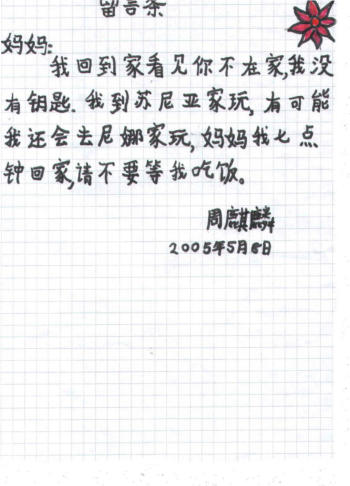 留言条
妈妈:
我回到家看见你不在家,我没
有钥匙.我到苏尼亚家玩,有可能
我还会去尼娜家玩,妈妈我七点
钟回家,请不要等我吃饭。
周麒麟
2005年5月8日